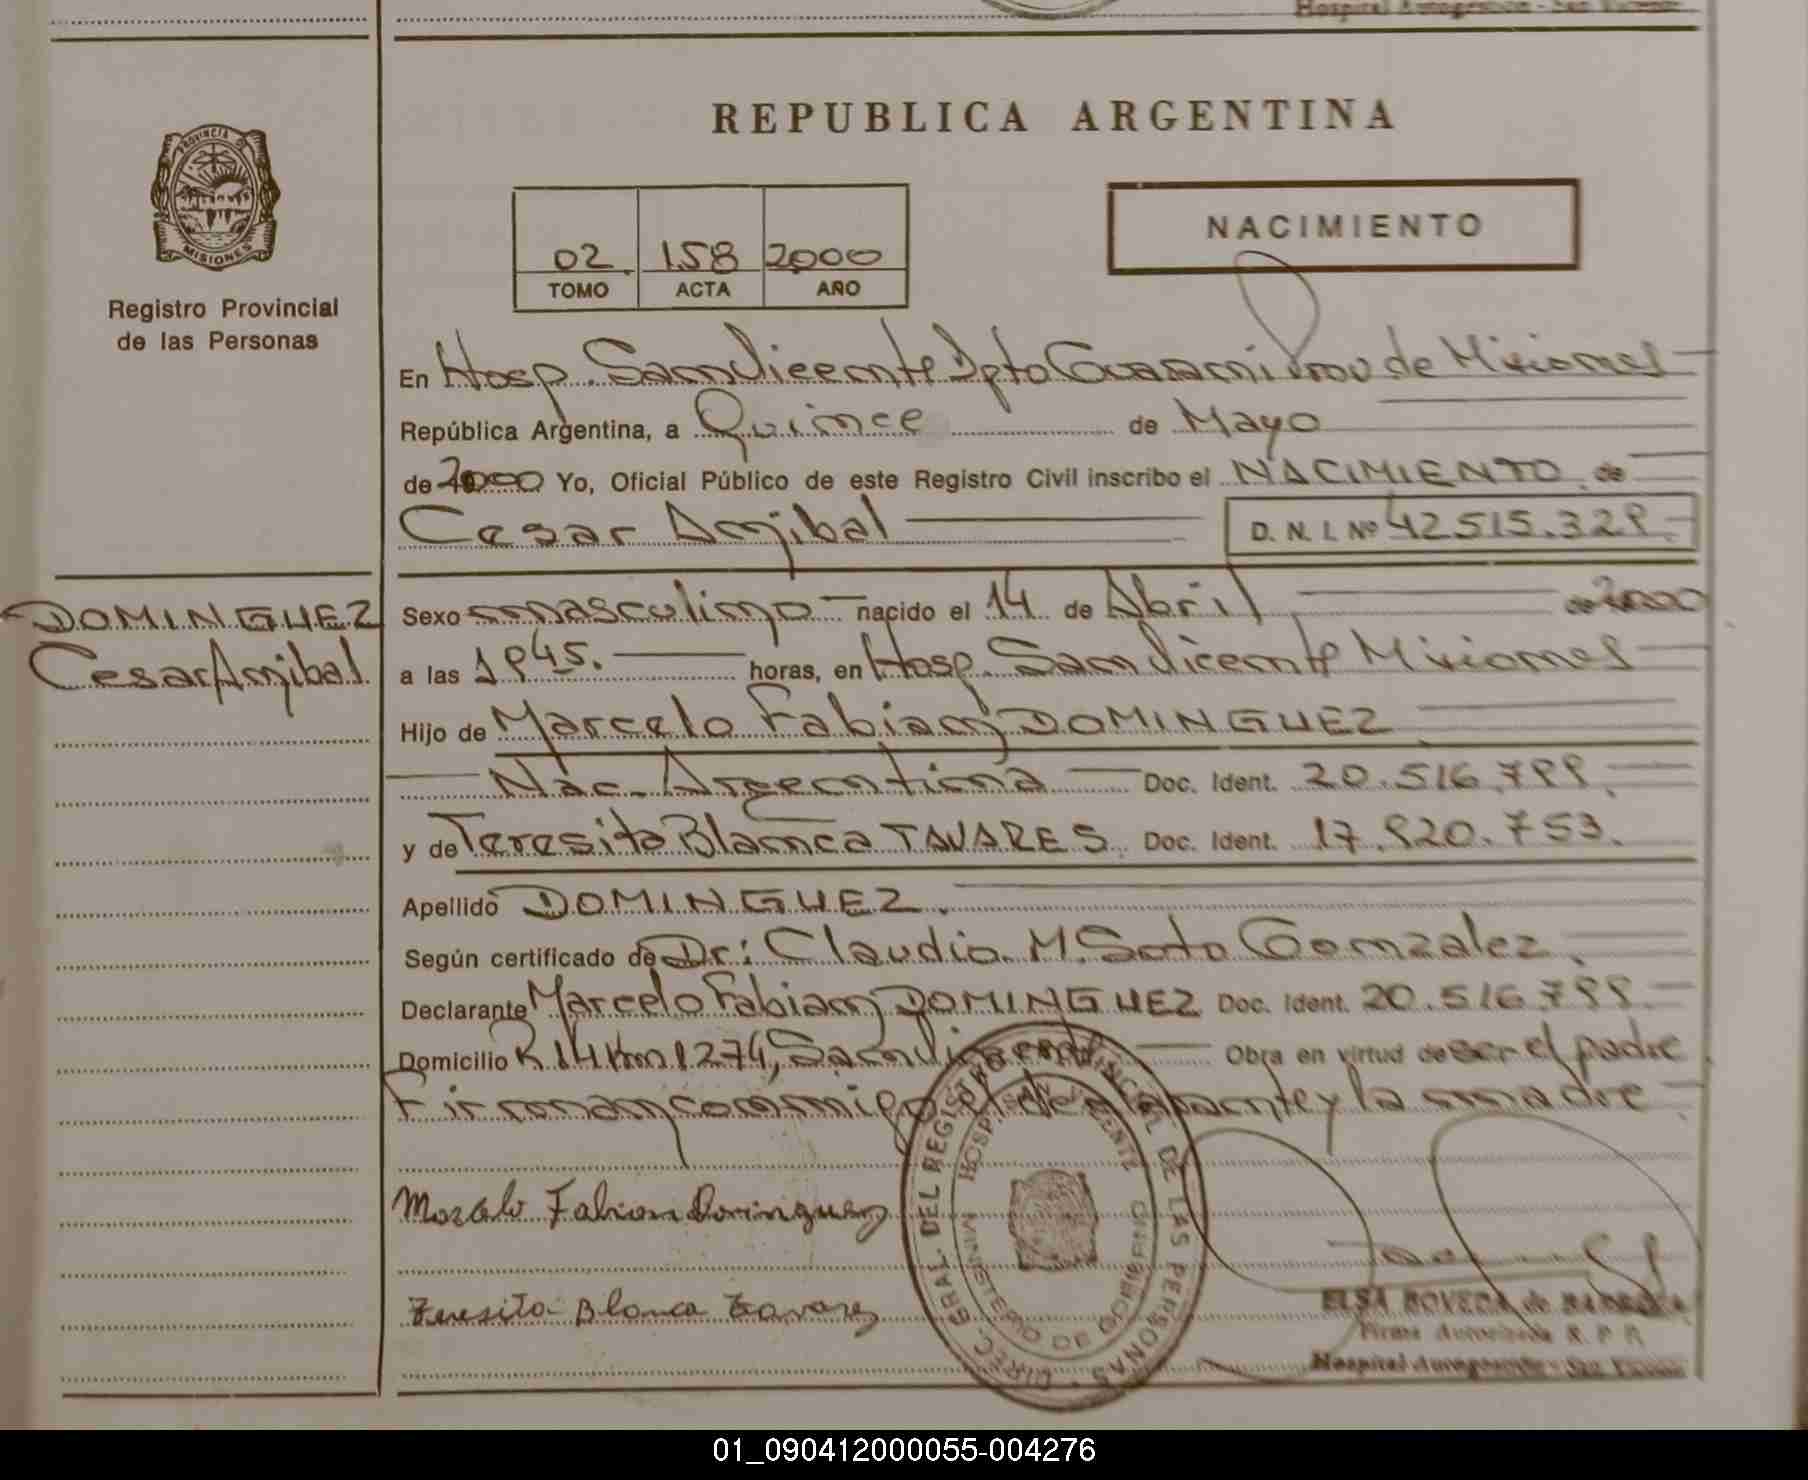 Hospital Autogestión - San Vicente
REPUBLICA ARGENTINA
PROVINCIA D
MISIONES
Registro Provincial
de las Personas
02 158 2000
TOMO ACTA AÑO
NACIMIENTO
En Hosp. San Vicente Dpto Guarani Prov de Misiones
República Argentina, a Quince de Mayo
de 2000 Yo, Oficial Público de este Registro Civil inscribo el NACIMIENTO de
Cesar Anibal D. N. I. Nº 42.515.329.
DOMINGUEZ
Cesar Anibal
Sexo masculino nacido el 14 de Abril de 2000
a las 1945. horas, en Hosp. San Vicente Misiones
Hijo de Marcelo Fabian DOMINGUEZ
Nac. Argentina Doc. Ident. 20.516.799.
y de Teresita Blanca TAVARES. Doc. Ident. 17.920.753.
Apellido DOMINGUEZ.
Según certificado de Dr: Claudio M. Soto Gonzalez.
Declarante Marcelo Fabian DOMINGUEZ Doc. Ident. 20.516.799.
Domicilio R 14 Km 1274, San Vicente Obra en virtud de ser el padre
Firman conmigo el declarante y la madre
Marcelo Fabian Dominguez
Teresita Blanca Tavarez
DIREC. GRAL. DEL REGISTRO PROVINCIAL DE LAS PERSONAS
HOSP. SAN VICENTE
MINISTERIO DE GOBIERNO
ELSA BOVEDA de BARBOZA
Firma Autorizada R. P. P.
Hospital Autogestión - San Vicente
01_090412000055-004276